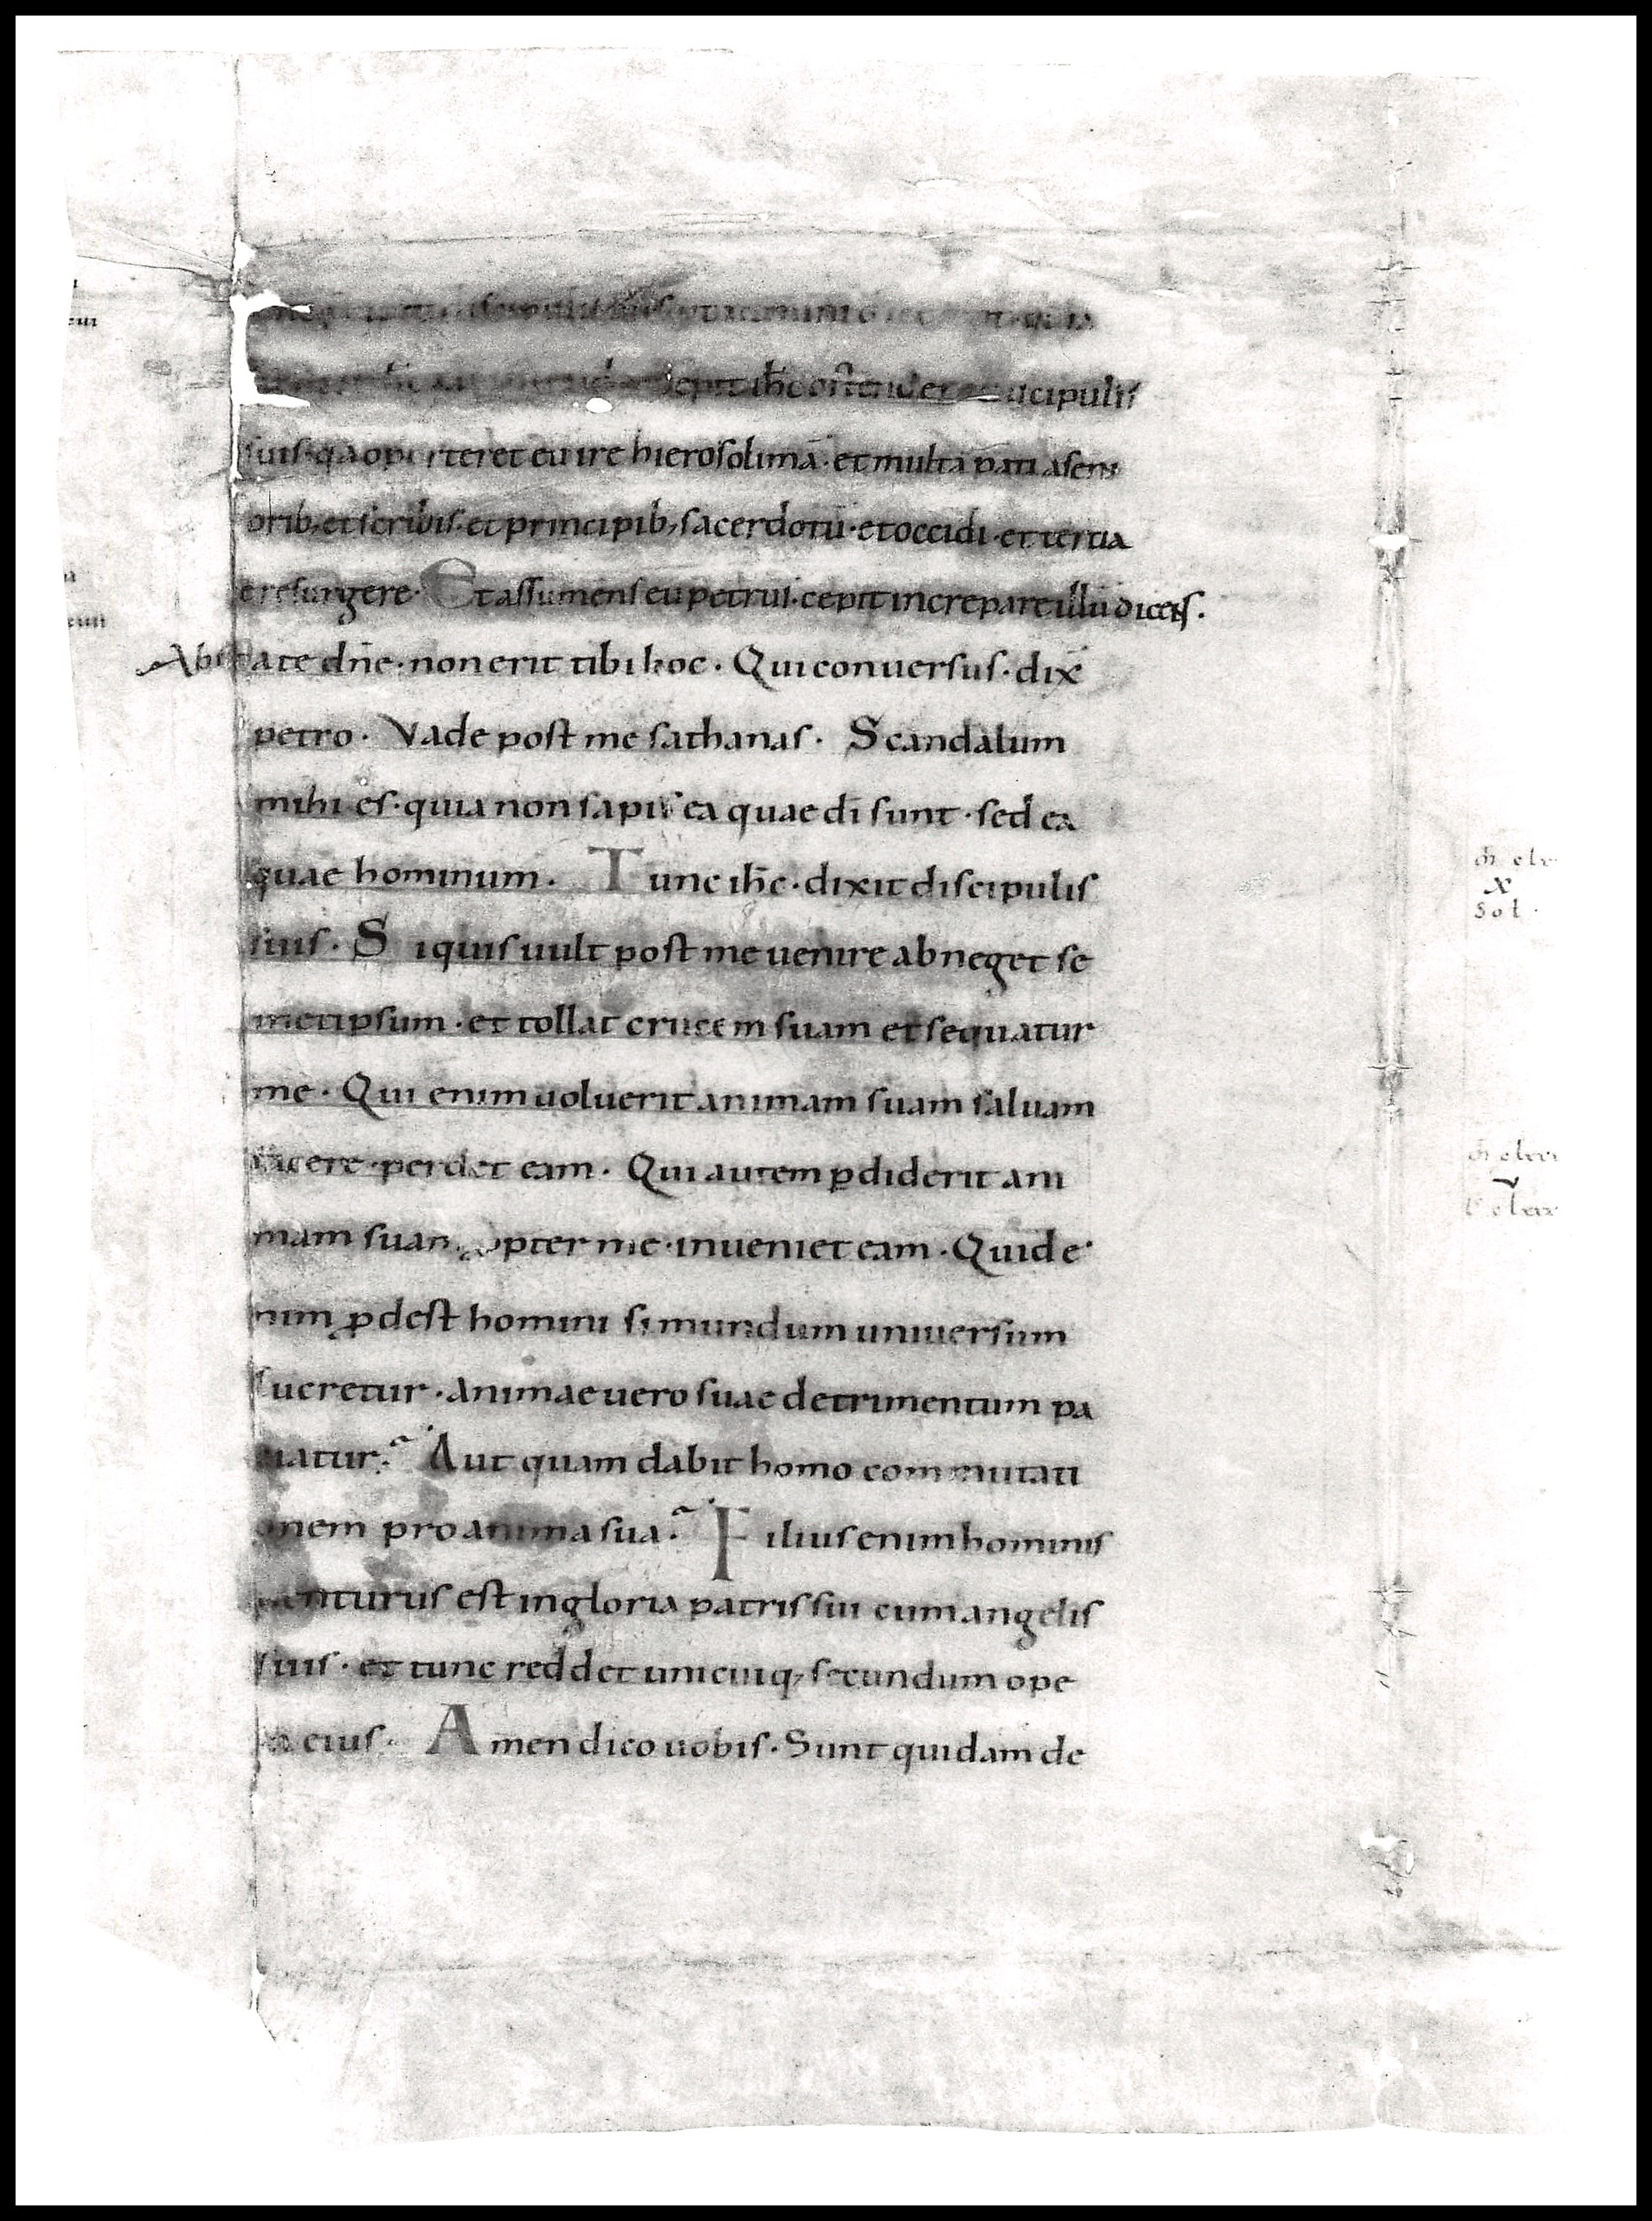 ut nemini dicerent quia
cepit ihc ostendere discipulis
suis· qa oporteret eū ire hierosolimā· et multa pati a seni
orib; et scribis· et principib; sacerdotū· et occidi· et tertia
e resurgere· Et assumens eū petrus· cepit increpare illū dicens.
Absit a te dn̄e· non erit tibi hoc· Qui conversus· dix̄
petro· Vade post me sathanas· Scandalum
mihi es· quia non sapis ea quae dī sunt· sed ea
quae hominum· Tunc ihc̄· dixit discipulis
suis· Si quis vult post me venire abneget se
metipsum· et tollat crucem suam et sequatur
me· Qui enim voluerit animam suam salvam
facere· perdet eam· Qui autem ꝑdiderit ani
mam suam pter me· inveniet eam· Quid e
nim ꝓdest homini si mundum universum
lucretur· animae vero suae detrimentum pa
tiatur? Aut quam dabit homo commutati
onem pro anima sua? Filius enim hominis
venturus est in gloria patris sui cum angelis
suis· et tunc reddet unicuiq; secundum ope
ra eius· Amen dico vobis· Sunt quidam de